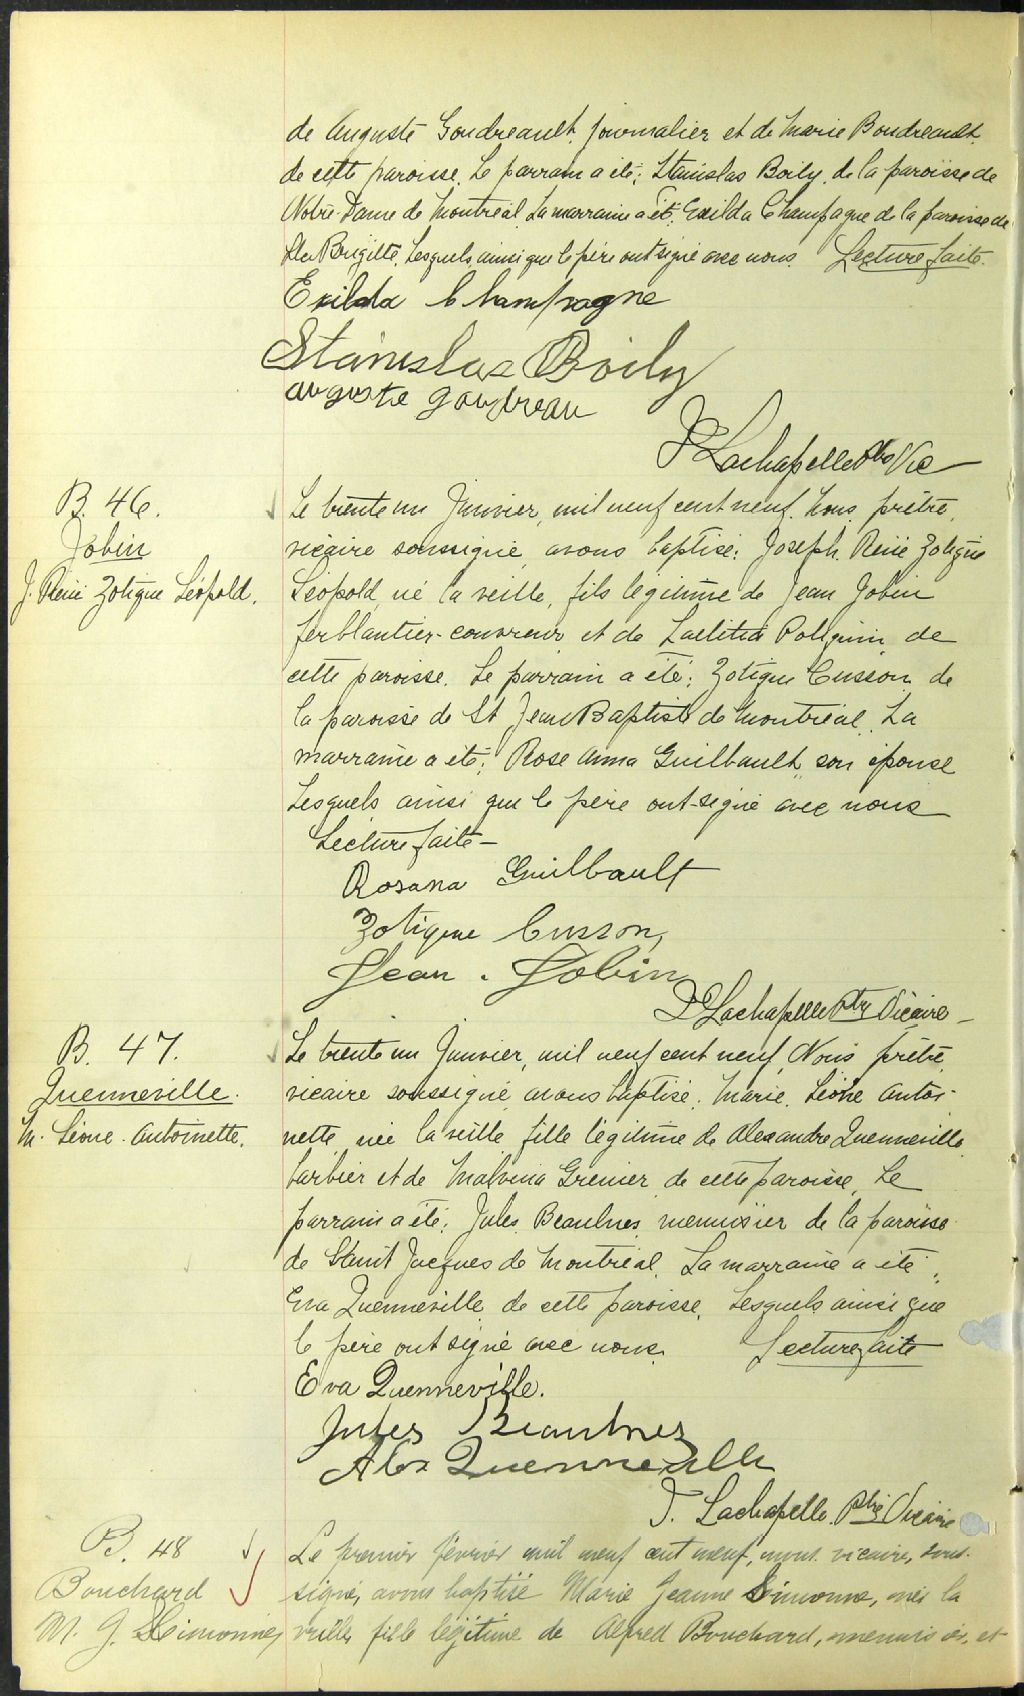 de Auguste Goudreault, journalier et de Marie Boudreault,
de cette paroisse. Le parrain a été; Stanislas Boily, de la paroisse de
Notre-Dame de Montréal. La marraine a été; Exilda Champagne de la paroisse de
Ste Brigitte. Lesquels ainsi que le père ont signé avec nous. Lecture faite.
Exilda Champagne
Stanislas Boily
auguste goudreau
Lachapelle Ptre Vic
B. 46.
Jobin
J. René Zotique Léopold.
Le trente un Janvier, mil neuf cent neuf. Nous, prêtre,
vicaire soussigné, avons baptisé; Joseph, René Zotique
Léopold, né la veille, fils légitime de Jean Jobin
ferblantier-couvreur et de Laetitia, de
cette paroisse. Le parrain a été; Zotique Cusson, de
la paroisse de St Jean Baptiste de Montréal. La
marraine a été; Rose Anna Guilbault, son épouse
Lesquels ainsi que le père ont signé avec nous
Lecture faite -
Rosana Guilbault
Zotique Cusson,
Jean . Jobin
Lachapelle Ptre Vicaire -
B. 47.
Quenneville.
M. Léone. Antoinette.
Le trente un Janvier, mil neuf cent neuf, Nous prêtre,
vicaire soussigné, avons baptisé, Marie, Léone Antoi-
nette, née la veille, fille légitime de Alexandre Quenneville,
barbier et de Malvina Grenier, de cette paroisse. Le
parrain a été; Jules Beaulnes, menuisier de la paroisse
de Saint Jacques de Montréal. La marraine a été,
Eva Quenneville, de cette paroisse. Lesquels ainsi que
le père ont signé avec nous. Lecture faite
Eva Quenneville.
Jules Beaulnes
Alex Quenneville
J. Lachapelle. Ptre Vicaire
B. 48
Bouchard
M. J. Simonne
Le premier février mil neuf cent neuf, nous vicaire, sous-
signé, avons baptisé Marie Jeanne Simonne, née la
veille, fille légitime de Alfred Bouchard, menuisier, et